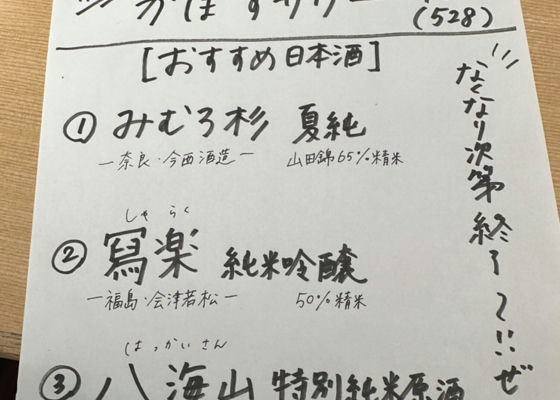 かぼすサワー
(528)
[おすすめ日本酒]
① みむろ杉 夏純
ー奈良・今西酒造ー 山田錦65%精米
しゃらく
② 冩楽 純米吟醸
ー福島・会津若松ー 50%精米
はっかいさん
③ 八海山 特別純米原酒
なくなり次第終了〜!!ぜ